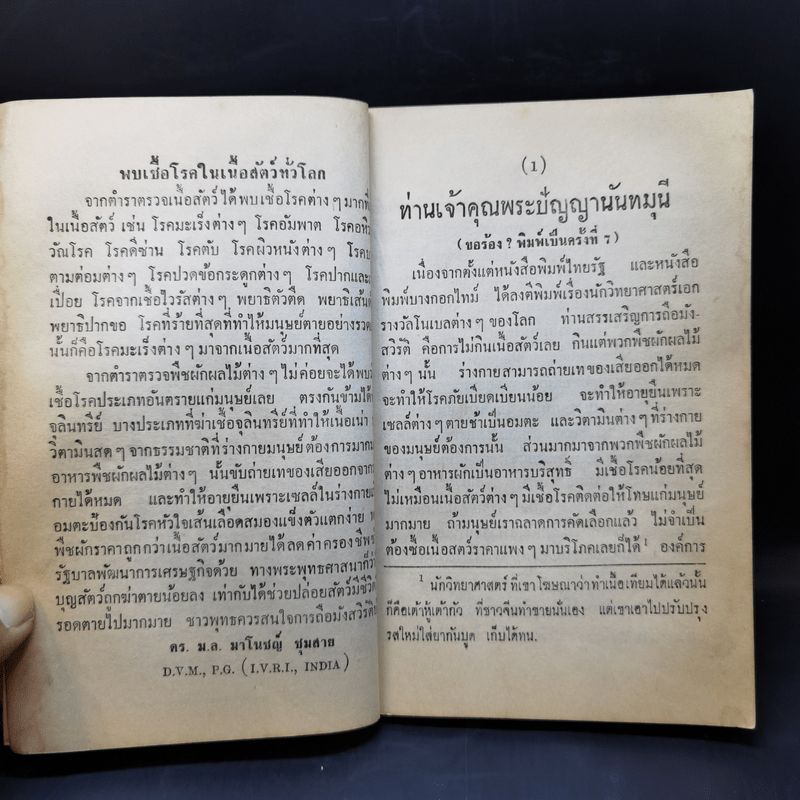 พบเชื้อโรคในเนื้อสัตว์ทั่วโลก
จากตำราตรวจเนื้อสัตว์ ได้พบเชื้อโรคต่าง ๆ มากที่
ในเนื้อสัตว์ เช่น โรคมะเร็งต่างๆ โรคอัมพาต
วัณโรค โรคดีซ่าน โรคตับ โรคผิวหนังต่าง ๆ
ตามต่อมต่างๆ โรคปวดข้อกระดูกต่างๆ โรคปากและ
เปื่อย โรคจากเชื้อไวรัสต่างๆ พยาธิตัวตืด พยาธิเส้น
พยาธิปากขอ โรคที่ร้ายที่สุดที่ทำให้มนุษย์ตายอย่าง
นั้นก็คือโรคมะเร็งต่าง ๆ มาจากเนื้อสัตว์มากที่สุด
จากตำราตรวจพืชผักผลไม้ต่าง ๆ ไม่ค่อยจะได้พบ
เชื้อโรคประเภทอันตรายแก่มนุษย์เลย ตรงกันข้ามได้
จุลินทรีย์ บางประเภทที่ฆ่าเชื้อจุลินทรีย์ที่ทำให้เนื้อเน่า
วิตามินสดๆ จากธรรมชาติที่ร่างกายมนุษย์ต้องการมาก
อาหารพืชผักผลไม้ต่างๆ นั้นขับถ่ายเทของเสียออกจาก
กายได้หมด และทำให้อายุยืนเพราะเซลล์ในร่างกาย
อมตะป้องกันโรคหัวใจเส้นเลือดสมองแข็งตัวแตกง่าย
พืชผักราคาถูกกว่าเนื้อสัตว์มากมายได้ ลดค่าครองชีพ
รัฐบาลพัฒนาการเศรษฐกิจด้วย ทางพระพุทธศาสนาก็
บุญสัตว์ถูกฆ่าตายน้อยลง เท่ากับได้ช่วยปล่อยสัตว์มีชีวิต
รอดตายไปมากมาย ชาวพุทธควรสนใจการถือมังสวิรัติ
ดร. ม.ล. มาโนชญ์ ชุมสาย
D.V.M., P.G. (I.V.R.I., INDIA)
(1)
ท่านเจ้าคุณพระปัญญานันทมุนี
(ขอร้อง ? พิมพ์เป็นครั้งที่ 7)
เนื่องจากตั้งแต่หนังสือพิมพ์ไทยรัฐ และหนังสือ
พิมพ์บางกอกไทม์ ได้ลงตีพิมพ์เรื่องนักวิทยาศาสตร์เอก
รางวัลโนเบลต่างๆ ของโลก ท่านสรรเสริญการถือมัง-
สวิรัติ คือการไม่กินเนื้อสัตว์เลย กินแต่พวกพืชผักผลไม้
ต่างๆ นั้น ร่างกายสามารถถ่ายเทของเสียออกได้หมด
จะทำให้โรคภัยเบียดเบียนน้อย จะทำให้อายุยืนเพราะ
เซลล์ต่างๆ ตายช้าเป็นอมตะ และวิตามินต่างๆ ที่ร่างกาย
ของมนุษย์ต้องการนั้น ส่วนมากมาจากพวกพืชผักผลไม้
ต่างๆ อาหารผักเป็นอาหารบริสุทธิ์ มีเชื้อโรคน้อยที่สุด
ไม่เหมือนเนื้อสัตว์ต่างๆ มีเชื้อโรคติดต่อให้โทษแก่มนุษย์
มากมาย ถ้ามนุษย์เราฉลาดการคัดเลือกแล้ว ไม่จำเป็น
ต้องซื้อเนื้อสัตว์ราคาแพง ๆ มาบริโภคเลยก็ได้ ¹ องค์การ
¹ นักวิทยาศาสตร์ ที่เขาโฆษณาว่าทำเนื้อเทียมได้แล้วนั้น
ก็คือเต้าหู้เต้ากั้ว ที่ชาวจีนทำขายนั่นเอง แต่เขาเอาไปปรับปรุง
รสใหม่ใส่ยากันบูด เก็บได้ทน.